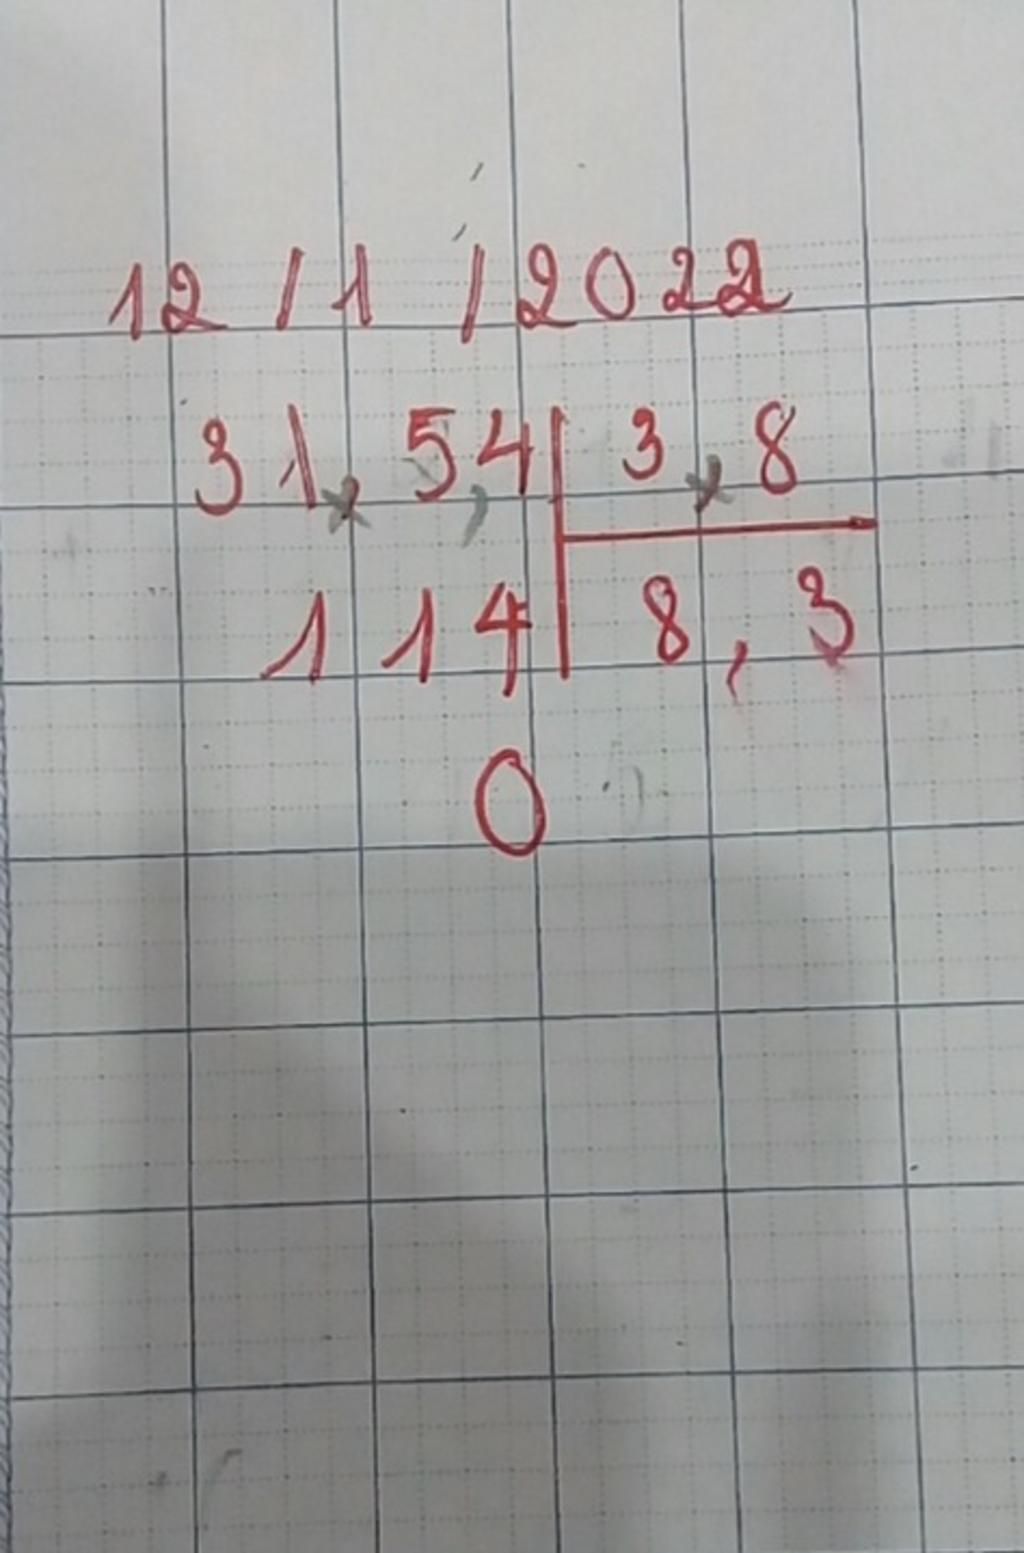 12/1/2022
31,54 | 3,8
114 | 8,3
0